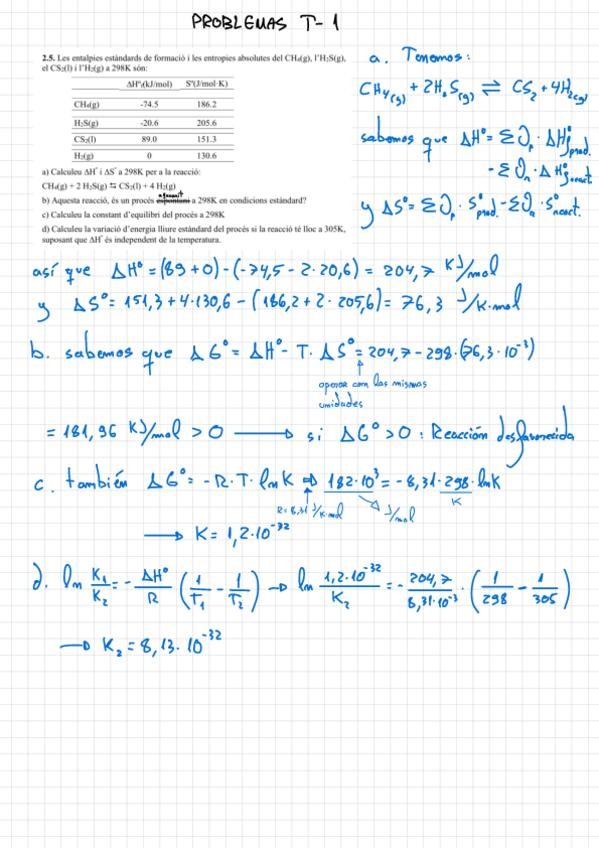 PROBLEMAS T-1
2.5. Les entalpies estàndards de formació i les entropies absolutes del CH₄(g), l'H₂S(g),
el CS₂(l) i l'H₂(g) a 298K són:
ΔHºf(kJ/mol) Sº(J/mol·K)
CH₄(g) -74.5 186.2
H₂S(g) -20.6 205.6
CS₂(l) 89.0 151.3
H₂(g) 0 130.6
a) Calculeu ΔHº i ΔSº a 298K per a la reacció:
CH₄(g) + 2 H₂S(g) ⇆ CS₂(l) + 4 H₂(g)
b) Aquesta reacció, és un procés a 298K en condicions estàndard?
c) Calculeu la constant d'equilibri del procés a 298K
d) Calculeu la variació d'energia lliure estàndard del procés si la reacció té lloc a 305K,
suposant que ΔHº és independent de la temperatura.
a. Tenemos:
CH₄(g) + 2H₂S(g) ⇌ CS₂ + 4H₂(g)
sabemos que ΔHº = Σ√p · ΔHºf prod.
- Σ√n · ΔHºf react.
y ΔSº = Σ√p · Sºprod. - Σ√n · Sºreact.
así que ΔHº = (89 + 0) - (-74,5 - 2·20,6) = 204,7 KJ/mol
y ΔSº = 151,3 + 4·130,6 - (186,2 + 2·205,6) = 76,3 J/K·mol
b. sabemos que ΔGº = ΔHº - T·ΔSº = 204,7 - 298·(76,3·10⁻³)
operar con las mismas
unidades
= 181,96 KJ/mol > 0 → si ΔGº > 0 : Reacción desfavorecida
c. también ΔGº = -R·T·lnK ⇒ 182·10³ = -8,31·298·lnK
R = 8,31 J/K·mol J/mol K
→ K = 1,2·10⁻³²
d. ln K₁/K₂ = - ΔHº/R (1/T₁ - 1/T₂) → ln 1,2·10⁻³²/K₂ = - 204,7/8,31·10⁻³ · (1/298 - 1/305)
→ K₂ = 8,13·10⁻³²